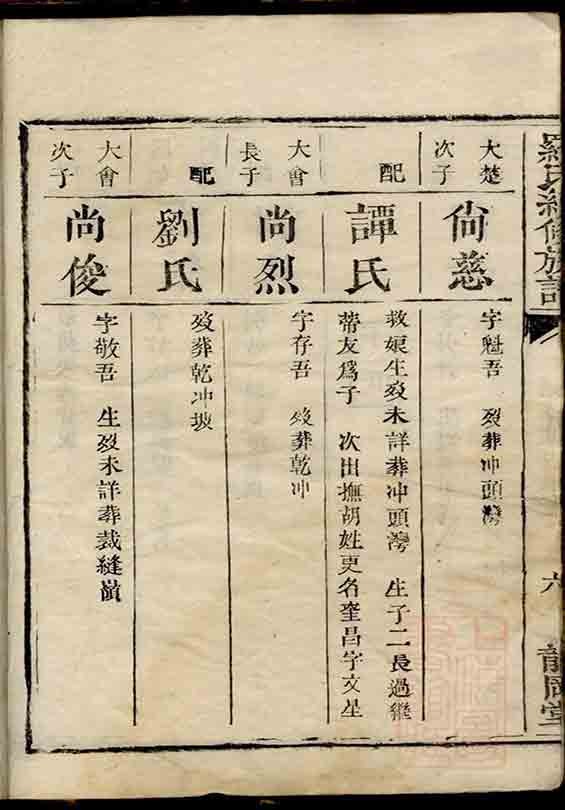 羅氏續修族譜
六
龍岡堂
大楚
次子
尚慈
字魁吾 歿葬冲頭灣
配
譚氏
救娘生歿未詳葬冲頭灣 生子二長過繼
蒂友爲子 次出撫胡姓更名奎昌字文星
大會
長子
尚烈
字存吾 歿葬乾冲
配
劉氏
歿葬乾冲坡
大會
次子
尚俊
字敬吾 生歿未詳葬裁縫嶺